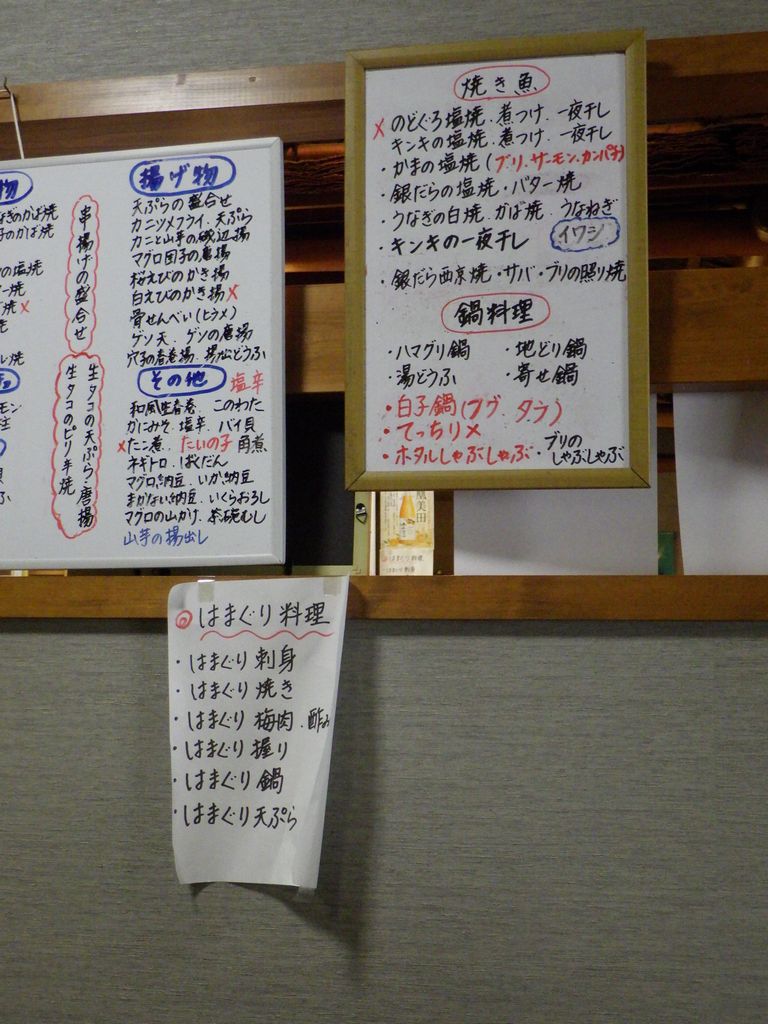 物
の塩焼
串揚げの盛合せ
生タコの天ぷら・唐揚
生タコのピリ辛焼
揚げ物
天ぷらの盛合せ
カニツメフライ、天ぷら
カニと山芋の磯辺揚
マグロ団子の唐揚
桜えびのかき揚
白えびのかき揚×
骨せんべい(ヒラメ)
ゲソ天、ゲソの唐揚
穴子の春巻揚、揚出しどうふ
その他
塩辛
和風生春巻、このわた
かにみそ、塩辛、バイ貝
×たこ煮、たいの子 角煮
ネギトロ、ばくだん
マグロ納豆、いか納豆
まかない納豆、いくらおろし
マグロの山かけ、茶碗むし
山芋の揚出し
焼き魚
×のどぐろ塩焼、煮つけ、一夜干し
キンキの塩焼、煮つけ、一夜干し
・かまの塩焼(ブリ、サーモン、カンパチ)
・銀だらの塩焼・バター焼
・うなぎの白焼、かば焼、うなねぎ
・キンキの一夜干し
イワシ
・銀だら西京焼・サバ・ブリの照り焼
鍋料理
・ハマグリ鍋 ・地どり鍋
・湯どうふ ・寄せ鍋
・白子鍋(フグ、タラ)
・てっちり×
・ホタルしゃぶしゃぶ・ブリのしゃぶしゃぶ
美田
◎はまぐり料理
・はまぐり刺身
・はまぐり焼き
・はまぐり梅肉、酢み
・はまぐり握り
・はまぐり鍋
・はまぐり天ぷら